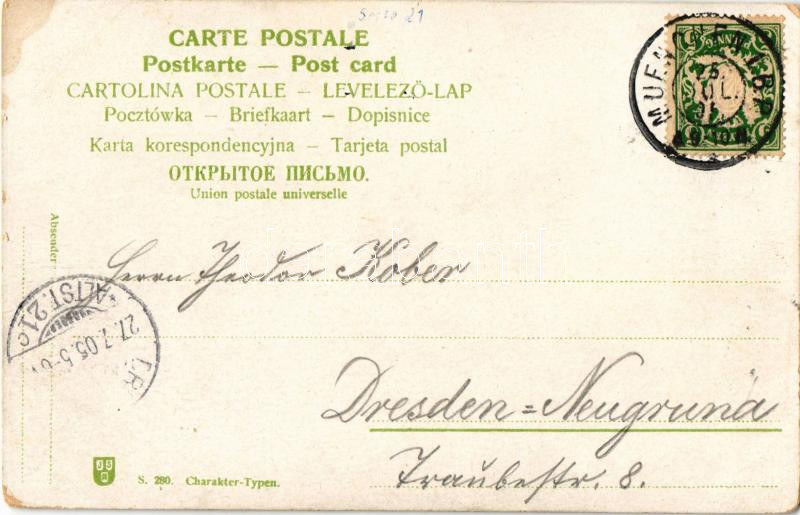 Serie 21
CARTE POSTALE
Postkarte — Post card
CARTOLINA POSTALE — LEVELEZÖ-LAP
Pocztówka — Briefkaart — Dopisnice
Karta korespondencyjna — Tarjeta postal
ОТКРЫТОЕ ПИСЬМО.
Union postale universelle
MUENCHEN
25
JUL.
Absender
Herrn Theodor Kober
ALTST. 21c
27.7.05.5-6
DR
Dresden=Neugruna
Traubestr. 8.
S. 280. Charakter-Typen.